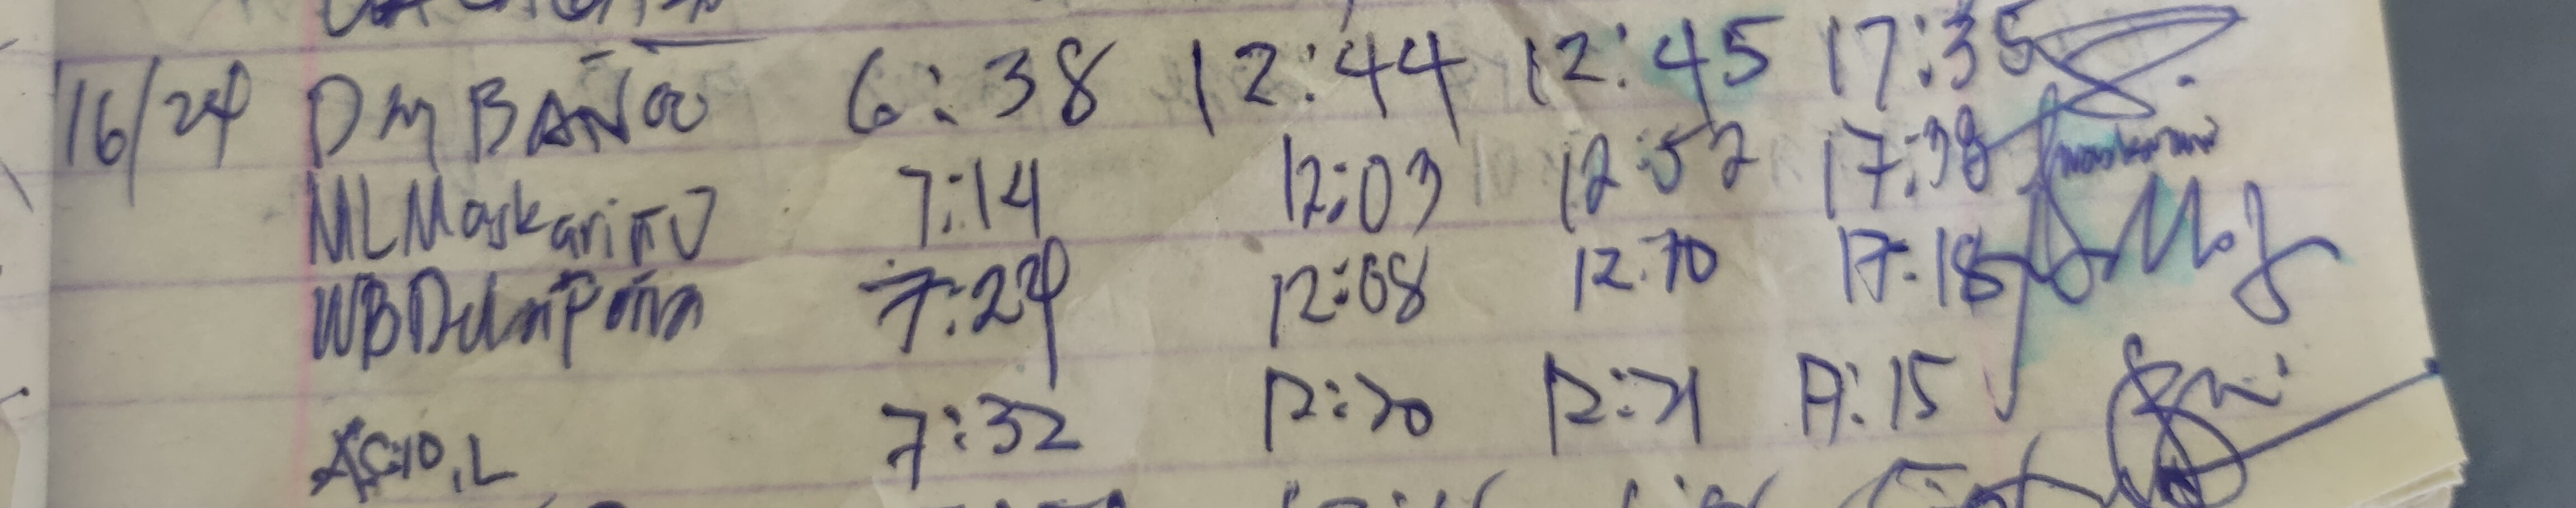 16/24 DM BAÑOO 6:38 12:44 12:45 17:35
ML Maskariño 7:14 12:03 12:52 17:38
WB Delapeña 7:24 12:08 12.70 17:18
12:20 12:21 17:15
ASCIO, L 7:32